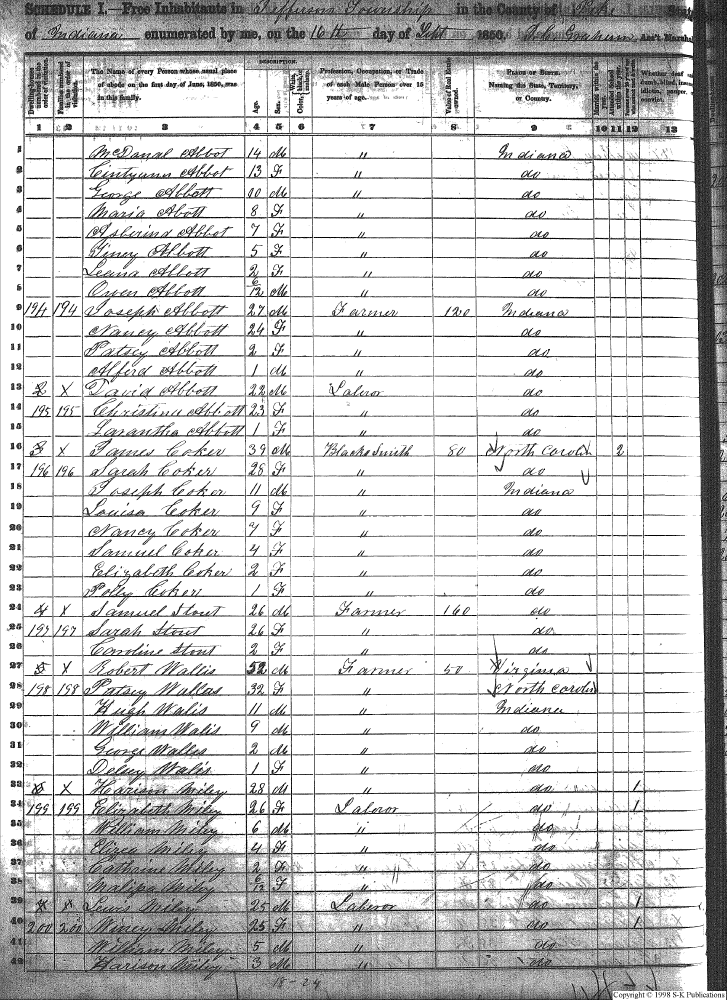 SCHEDULE I.—Free Inhabitants in Jefferson Township in the County of Pike State
of Indiana enumerated by me, on the 16th day of Sept 1850. Graham Ass't Marshal
DESCRIPTION
The Name of every Person whose usual place of abode on the first day of June, 1850, was in this family. Age. Sex. Profession, Occupation, or Trade of each Male Person over 15 years of age. Value of Real Estate owned. PLACE OF BIRTH. Naming the State, Territory, or Country.
1 2 3 4 5 6 7 8 9 10 11 12 13
1 McDanal Abbot 14 M " Indiana
2 Cintyann Abbot 13 F " do
3 George Abbott 10 M " do
4 Maria Abott 8 F " do
5 Asberind Abbot 7 F " do
6 Viney Abbott 5 F " do
7 Leana Abbott 2 F " do
8 Owen Abbott 6/12 M " do
9 194 194 Joseph Abbott 27 M Farmer 120 Indiana
10 Nancy Abbott 24 F " do
11 Patsey Abbott 2 F " do
12 Alferd Abbott 1 M " do
13 2 X David Abbott 22 M Laberor do
14 195 195 Christina Abbott 23 F " do
15 Larantha Abbott 1 F " do
16 3 X James Coker 39 M Black Smith 80 North Carolin 2
17 196 196 Sarah Coker 28 F " do
18 Joseph Coker 11 M " Indiana
19 Louisa Coker 9 F " do
20 Nancy Coker 7 F " do
21 Samuel Coker 4 F " do
22 Elizabeth Coker 2 F " do
23 Polly Coker 1 F " do
24 4 X Samuel Stout 26 M Farmer 160 do
25 197 197 Sarah Stout 26 F " do
26 Caroline Stout 2 F " do
27 5 X Robert Wallis 52 M Farmer 50 Virginia
28 198 198 Patsey Wallas 32 F " North Carolin
29 Hugh Walis 11 M " Indiana
30 William Walis 9 M " do
31 George Walles 2 M " do
32 Delsey Walis 1 F " do
33 X Harison Miley 28 M " do 1
34 199 199 Elizabeth Miley 26 F Laberor do 1
35 William Miley 6 M " do
36 Eliza Miley 4 F " do
37 Catharine Miley 2 F " do
38 Malissa Miley 6/12 F " do
39 Lewis Miley 25 M Laberor do 1
40 200 200 Winey Miley 25 F " do 1
41 William Miley 5 M " do
42 Harison Miley 3 M " do
18-24
Copyright © 1998 S-K Publications